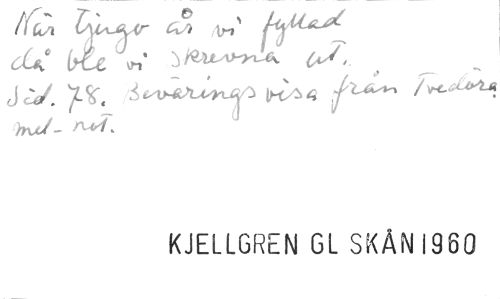 När tjugo år vi fyllad
då ble vi skrevna ut.
Sid. 78. Beväringsvisa från Tvedöra
mel-not.
KJELLGREN GL SKÅN1960